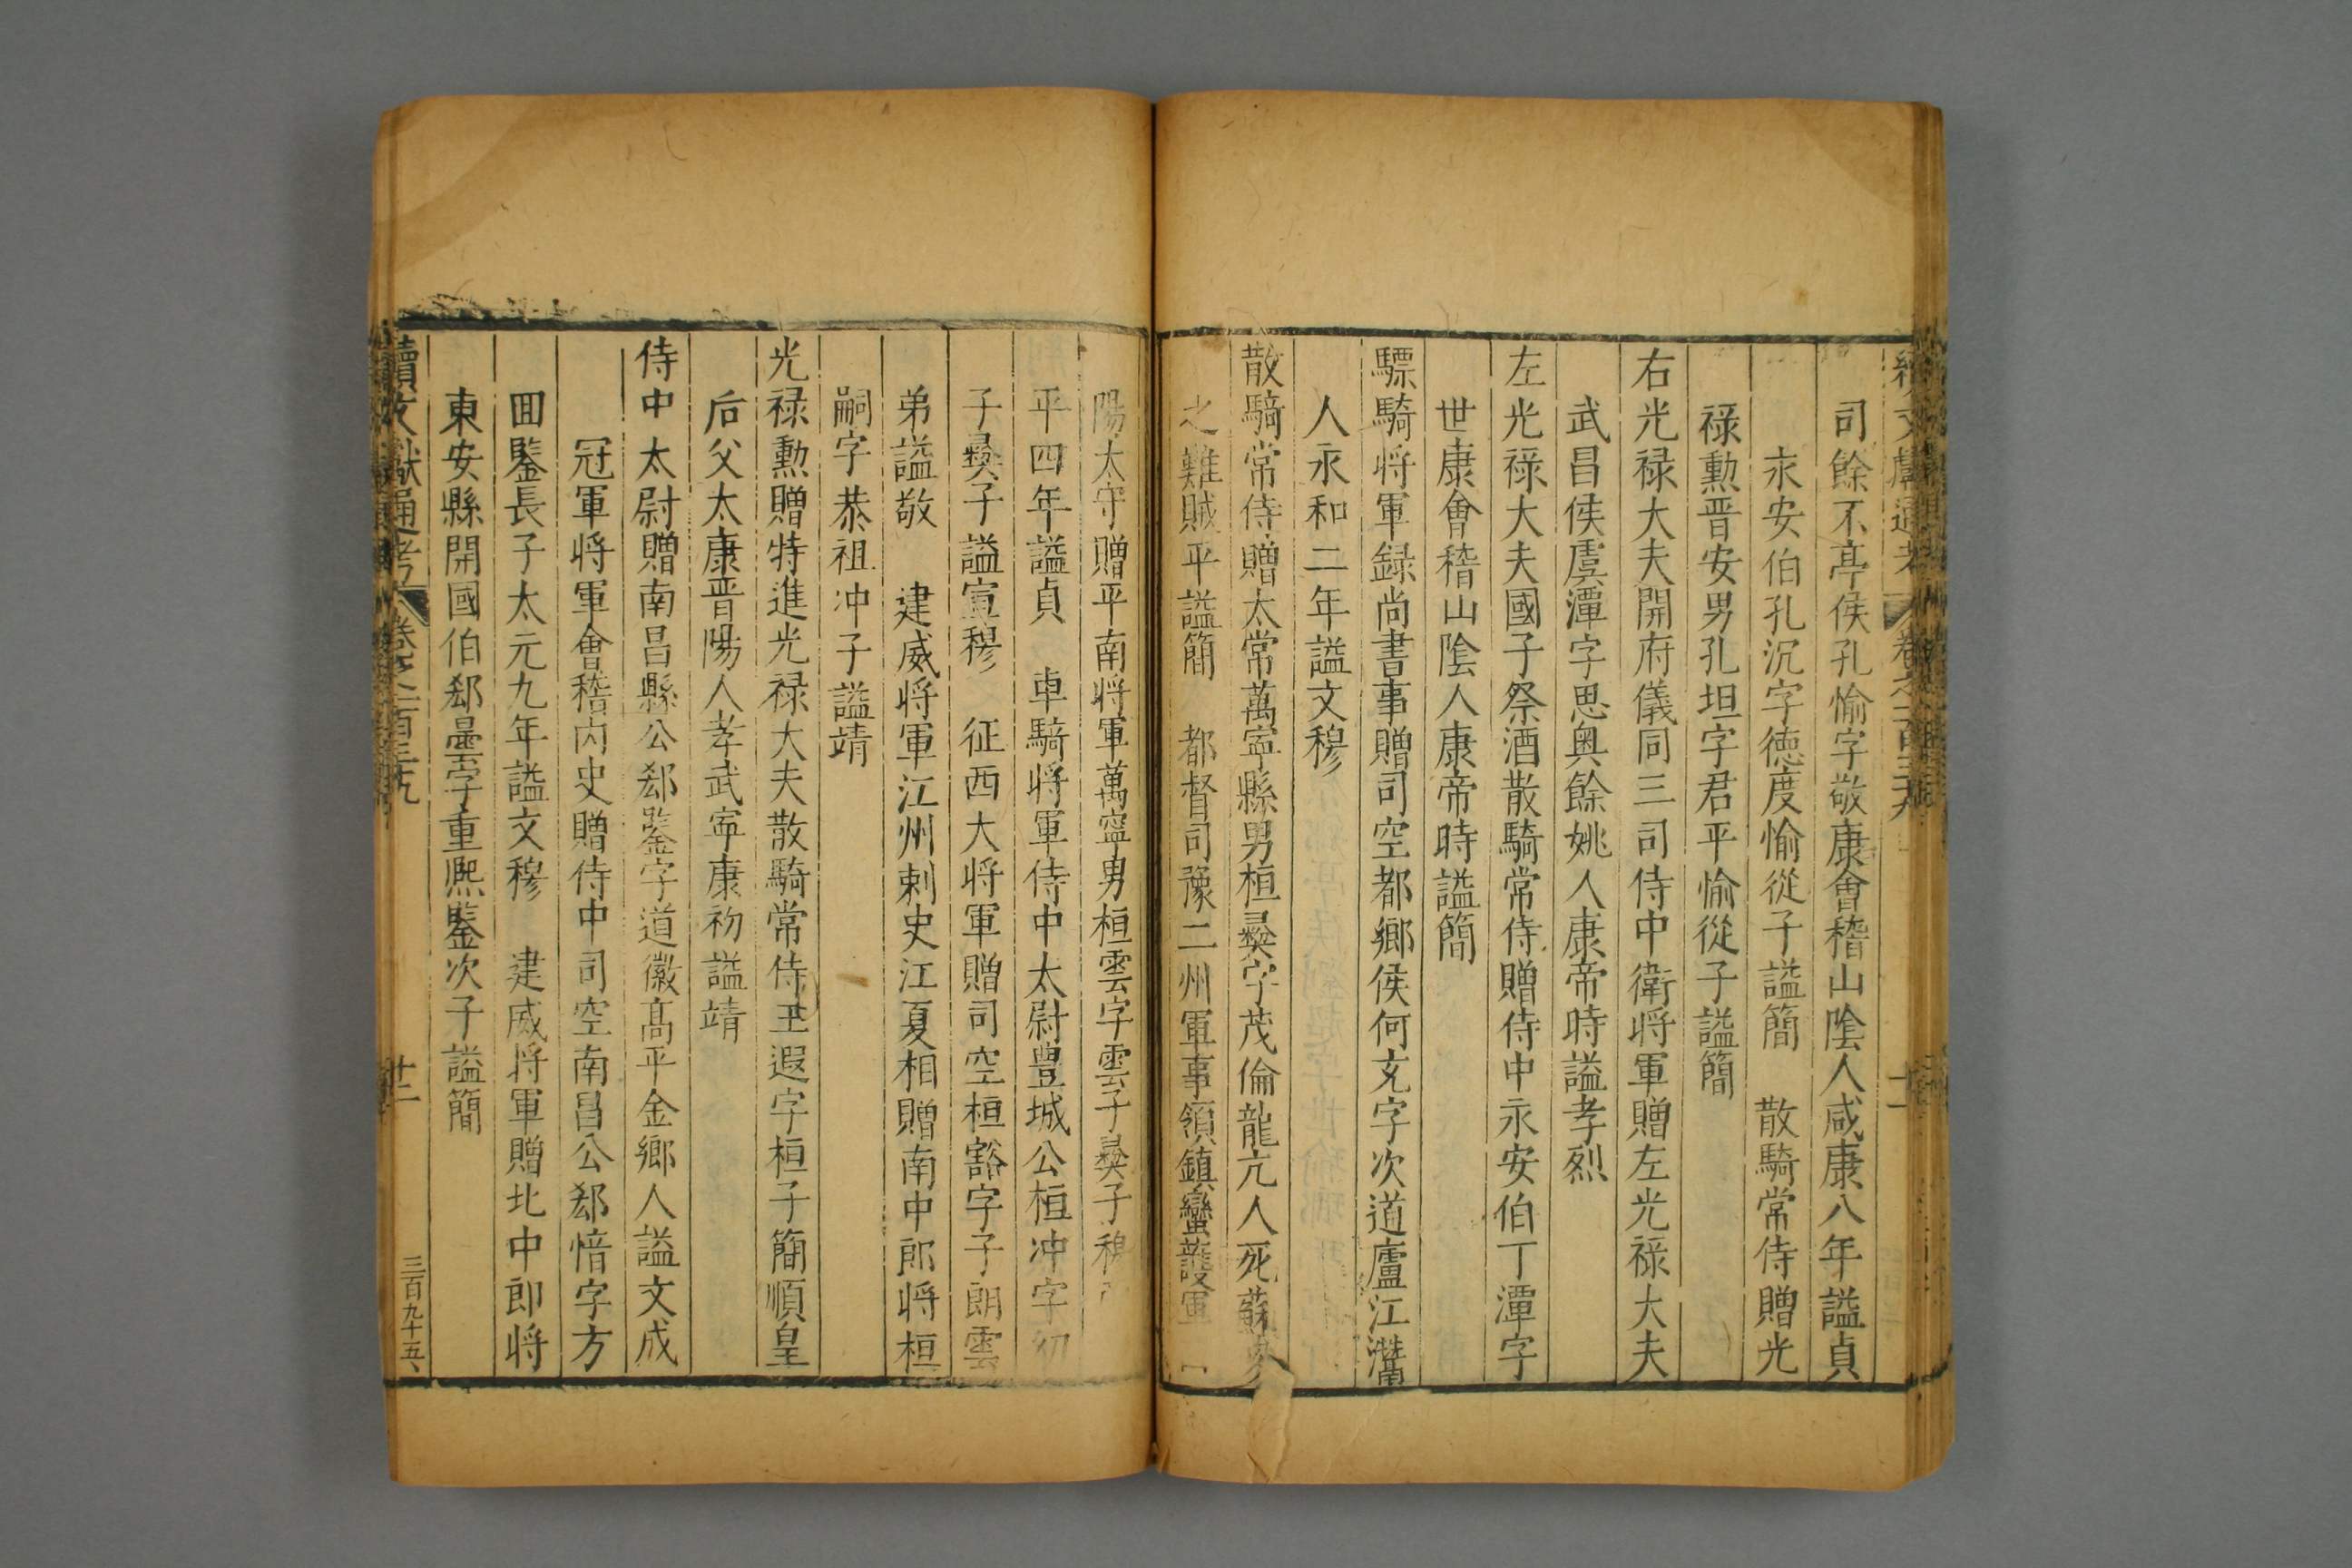 司餘不亭侯孔愉字敬康會稽山陰人咸康八年謚貞
永安伯孔沉字德度愉從子謚簡　散騎常侍贈光
祿勳晋安男孔坦字君平愉從子謚簡
右光祿大夫開府儀同三司侍中衛将軍贈左光祿大夫
武昌侯虞潭字思奥餘姚人康帝時謚孝烈
左光祿大夫國子祭酒散騎常侍贈侍中永安伯丁潭字
世康會稽山陰人康帝時謚簡
驃騎将軍録尚書事贈司空都鄉侯何充字次道廬江灊
人永和二年謚文穆
散騎常侍贈太常萬寧縣男桓彝字茂倫龍亢人死蘇峻
之難賊平謚簡　都督司豫二州軍事領鎮蠻護軍
陽太守贈平南将軍萬寧男桓雲字雲子彝子穆
平四年謚貞　車騎将軍侍中太尉豊城公桓冲字幼
子彝子謚宣穆　征西大将軍贈司空桓豁字子朗雲
弟謚敬　建威将軍江州刺史江夏相贈南中郎将桓
嗣字恭祖冲子謚靖
光禄勲贈特進光禄大夫散騎常侍王遐字桓子簡順皇
后父太康晋陽人孝武寧康初謚靖
侍中太尉贈南昌縣公郄鑒字道徽髙平金鄉人謚文成
冠軍将軍會稽内史贈侍中司空南昌公郄愔字方
囬鑒長子太元九年謚文穆　建威将軍贈北中郎将
東安縣開國伯郄曇字重熈鑒次子謚簡
續文獻通考　卷之二百三九　廿二　三百九十五